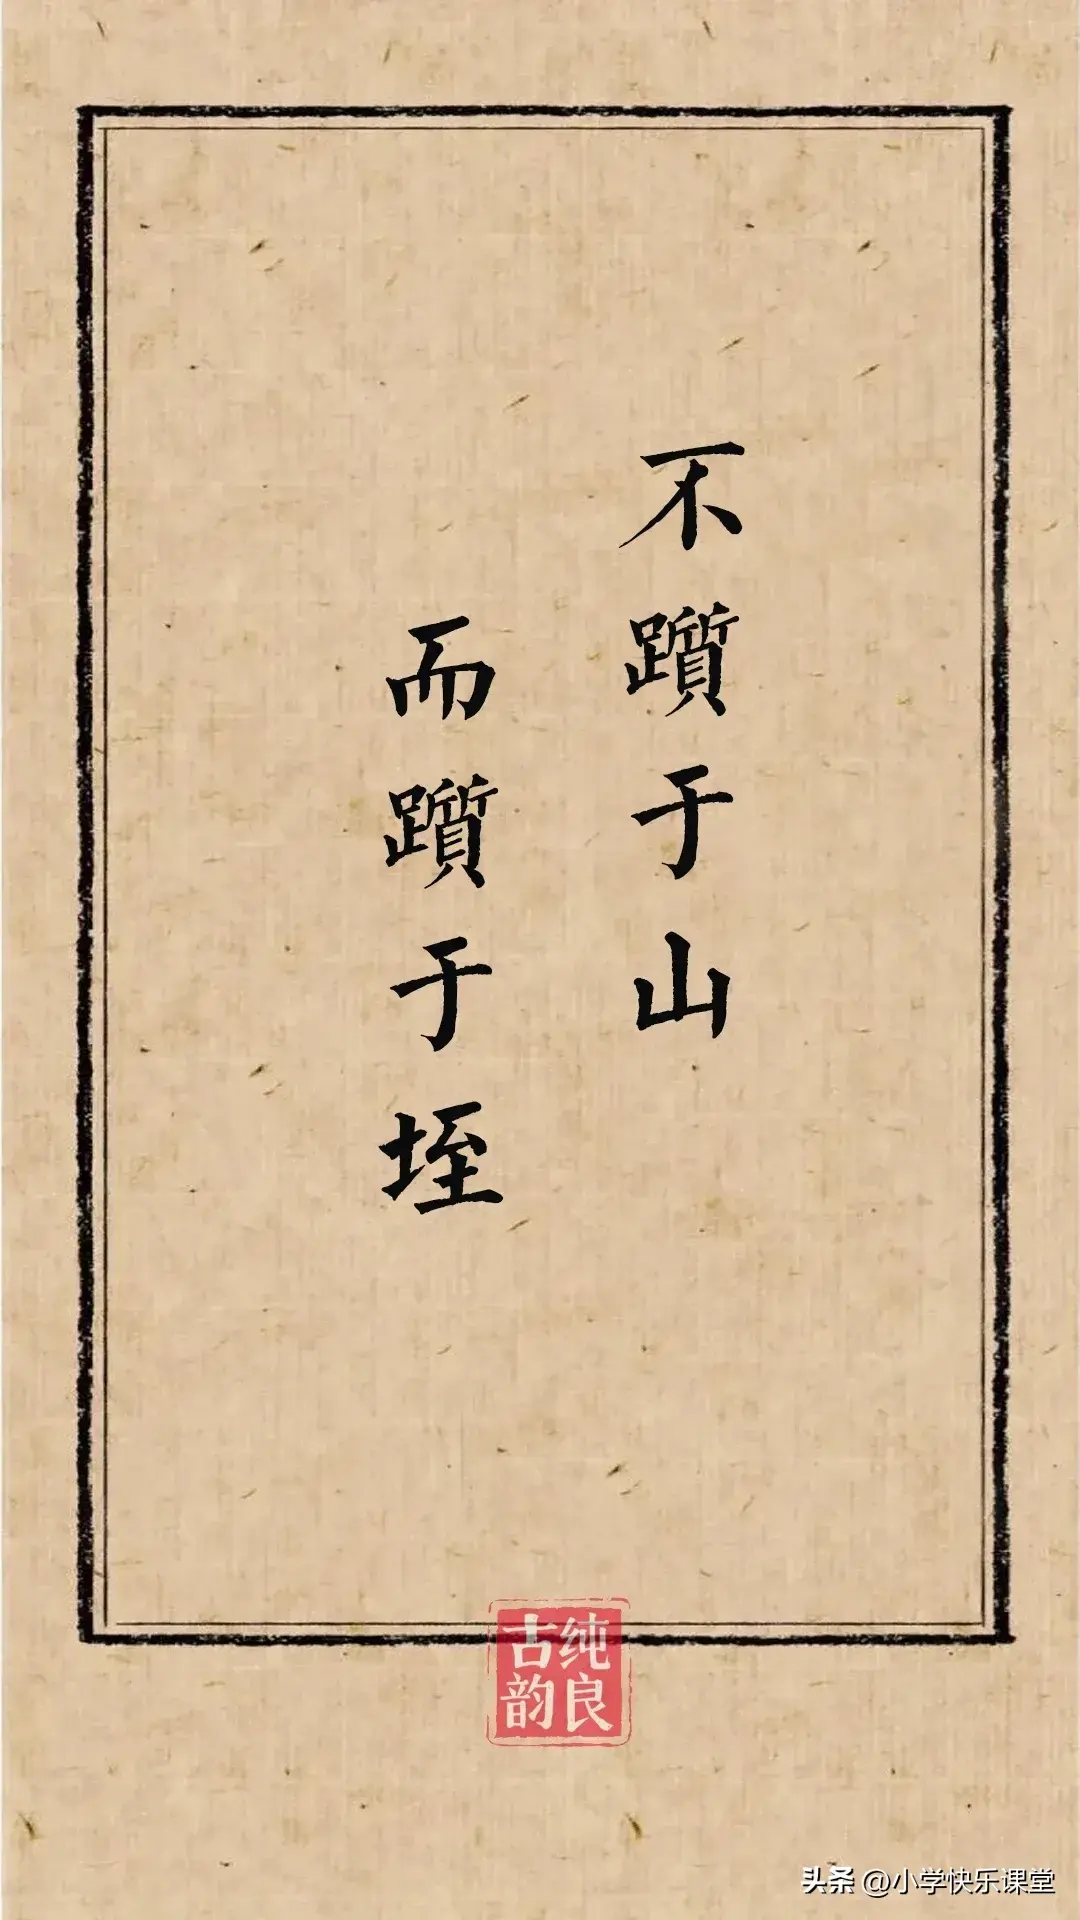 不躓于山
而躓于垤
纯良
古韵
头条 @小学快乐课堂